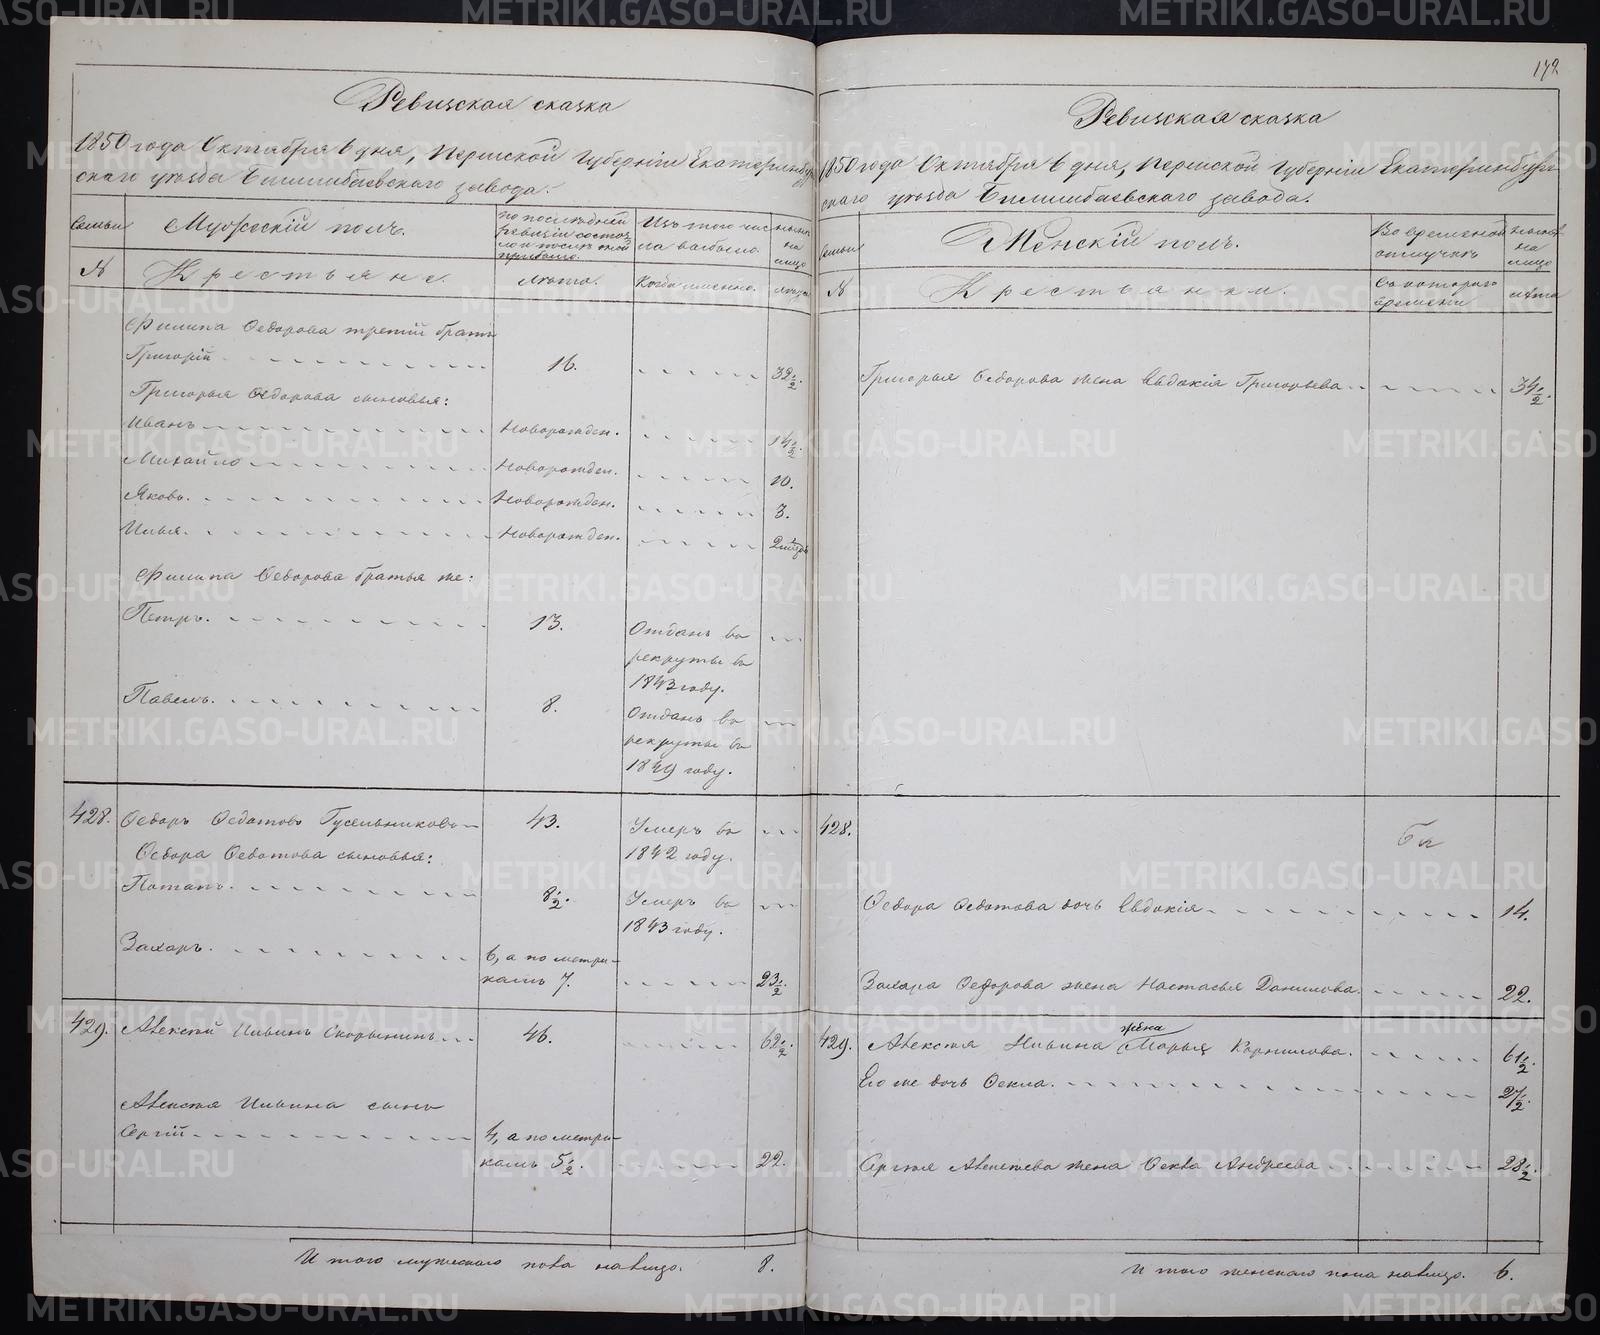 172
Ревизская сказка
1850 года Октября 6 дня, Пермской Губерніи Екатеринбург
скаго уезда Билимбаевскаго завода.
Семьи
Мужескій полъ.
по последней ревизіи состояло и после оной прибыло.
Изъ того числа выбыло.
ныне на лицо
№
Крестьяне.
Лета.
Когда именно.
лета
Филипа Федорова третій братъ
Григорій 16. 32 1/2.
Григорья Федорова сыновья:
Иванъ Новорожден. 14 1/2.
Михайло Новорожден. 10.
Яковъ. Новорожден. 3.
Илья. Новорожден.
Филипа Федорова братья же:
Петръ. 13. Отданъ въ
рекруты въ
1843 году.
Павелъ. 8. Отданъ въ
рекруты въ
1849 году.
428. Федоръ Федотовъ Гусельниковъ 43. Умеръ въ
Федора Федотова сыновья: 1842 году.
Потапъ. 8 1/2. Умеръ въ
1843 году.
Захаръ. 6, а по метри-
камъ 7. 23 1/2.
429. Алексей Ильинъ Скорынинъ 46. 62 1/2.
Алексея Ильина сынъ
Сергій 4, а по метри-
камъ 5 1/2. 22.
И того мужескаго пола налицо. 8.
Ревизская сказка
1850 года Октября 6 дня, Пермской Губерніи Екатеринбург
скаго уезда Билимбаевскаго завода.
Семьи
Женскій полъ.
Во временной отлучке
ныне на лицо
№
Крестьянки.
Съ котораго времени
лета
Григорья Федорова жена Евдокія Григорьева 34 1/2.
428.
Федора Федотова дочь Евдокія 14.
Захара Федорова жена Настасья Данилова. 22.
429. Алексея Ильина жена Марья Корнилова. 61 1/2.
Его же дочь Фекла. 27 1/2.
Сергея Алексеева жена Фекла Андреева 28 1/2.
И того женскаго пола налицо. 6.
METRIKI.GASO-URAL.RU